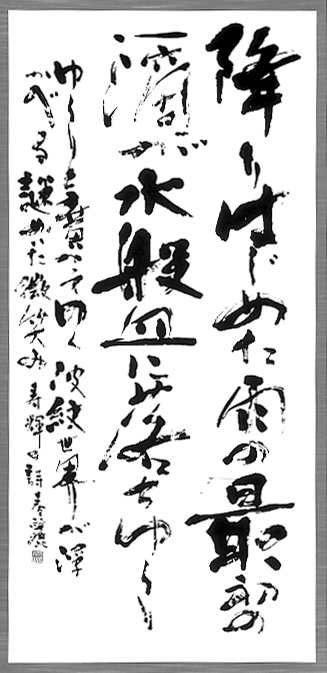 降りはじめた雨の最初の
滴が水盤に落ちゆっくり
ゆっくりと廣がって行く波紋世界が浮
かべる謎めいた微笑み 寿輝の詩